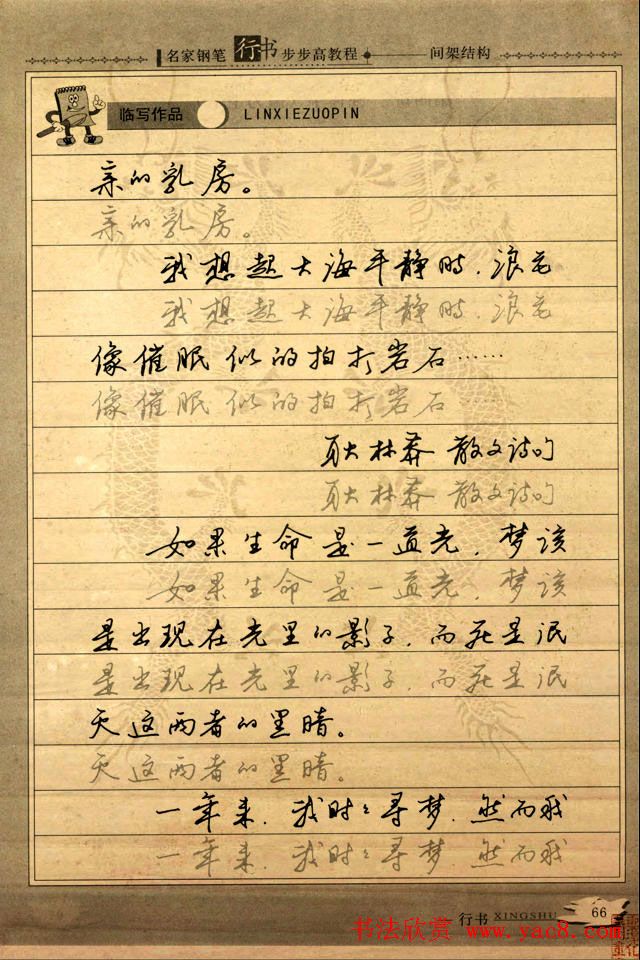 名家钢笔行书步步高教程 间架结构
临写作品 LINXIEZUOPIN
亲的乳房。
亲的乳房。
我想起大海平静时，浪花
我想起大海平静时，浪花
像催眠似的拍打岩石……
像催眠似的拍打岩石……
耿林莽 散文诗句
耿林莽 散文诗句
如果生命是一道光，梦该
如果生命是一道光，梦该
是出现在光里的影子，而死是泯
是出现在光里的影子，而死是泯
灭这两者的黑暗。
灭这两者的黑暗。
一年来，我时时寻梦，然而我
一年来，我时时寻梦，然而我
行书 XINGSHU 66
书法欣赏 www.yac8.com